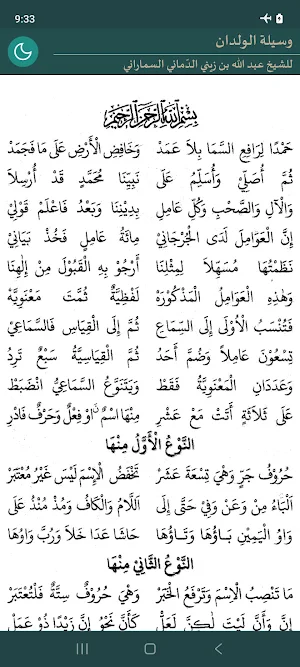 9:33
وسيلة الولدان
للشيخ عبد الله بن زبني الدّماني السماراني
بِسْمِ اللَّهِ الرَّحْمَنِ الرَّحِيْمِ
حَمْدًا لِرَافِعِ السَّمَا بِلاَ عَمَدْ وَخَافِضِ الْأَرْضِ عَلَى مَا فَجَمَدْ
ثُمَّ أُصَلِّيْ وَأُسَلِّمُ عَلَى نَبِيِّنَا مُحَمَّدٍ قَدْ أُرْسِلاَ
وَالْآلِ وَالصَّحْبِ وَكُلِّ عَامِلِ بِدِيْنِنَا وَبَعْدُ فَاعْلَمْ قَوْلِيْ
إِنَّ الْعَوَامِلَ لَدَى الْجُرْجَانِيْ مِائَةُ عَامِلٍ فَخُذْ بَيَانِيْ
نَظَمْتُهَا مُسَهِّلاً لِمِثْلِنَا أَرْجُوْ بِهِ الْقَبُوْلَ مِنْ إِلٰهِنَا
وَهٰذِهِ الْعَوَامِلُ الْمَذْكُوْرَهْ لَفْظِيَّةٌ ثُمَّتَ مَعْنَوِيَّهْ
فَتُنْسَبُ الْأُوْلَى إِلَى السِّمَاعِ ثُمَّ إِلَى الْقِيَاسِ فَالسَّمَاعِيْ
تِسْعُوْنَ عَامِلاً وَضُمَّ أَحَدُ ثُمَّ الْقِيَاسِيَّةُ سَبْعٌ تَرِدُ
وَعَدَدَانِ الْمَعْنَوِيَّةُ فَقَطْ وَيَتَنَوَّعُ السَّمَاعِيُّ انْضَبَطْ
عَلَى ثَلاَثَةٍ أَتَتْ مَعْ عَشْرِ مِنْهَا اسْمٌ اوْ فِعْلٌ وَحَرْفٌ فَادْرِ
النَّوْعُ الْأَوَّلُ مِنْهَا
حُرُوْفُ جَرٍّ وَهِيَ تِسْعَةَ عَشَرْ تَخْفَضُ الْاِسْمَ لَيْسَ غَيْرُ مُعْتَبَرْ
اَلْبَاءُ مِنْ وَعَنْ وَفِيْ حَتَّى إِلَى اللَّامُ وَالْكَافُ وَمُذْ مُنْذُ عَلَى
وَاوُ الْيَمِيْنِ بَاؤُهَا وَتَاؤُهَا حَاشَا عَدَا خَلاَ وَرُبَّ وَاوُهَا
النَّوْعُ الثَّانِيْ مِنْهَا
مَا تَنْصِبُ الْاِسْمَ وَتَرْفَعُ الْخَبَرْ وَهْيَ حُرُوْفٌ سِتَّةٌ فَلْتُعْتَبَرْ
إِنَّ وَأَنَّ لَيْتَ لٰكِنَّ لَعَلَّ كَأَنَّ نَحْوُ إِنَّ زَيْدًا ذُوْ عَمَلْ